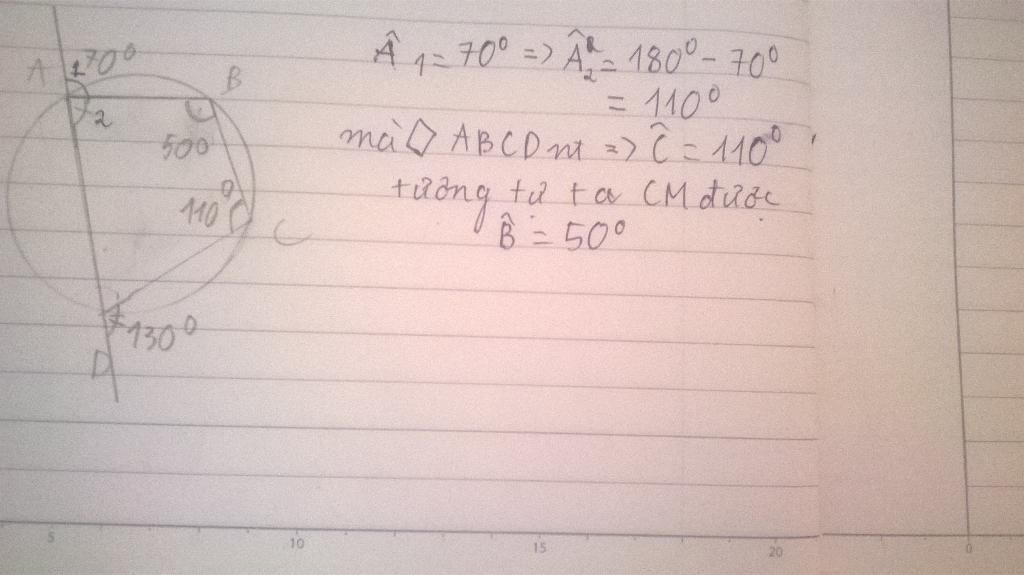 A 1 70⁰ B
2
50⁰
110⁰ C
130⁰
D
Â 1 = 70⁰ => Â2 = 180⁰ - 70⁰
= 110⁰
mà ◇ ABCD nt => Ĉ = 110⁰
tương tự ta CM được
B̂ = 50⁰
5 10 15 20 0